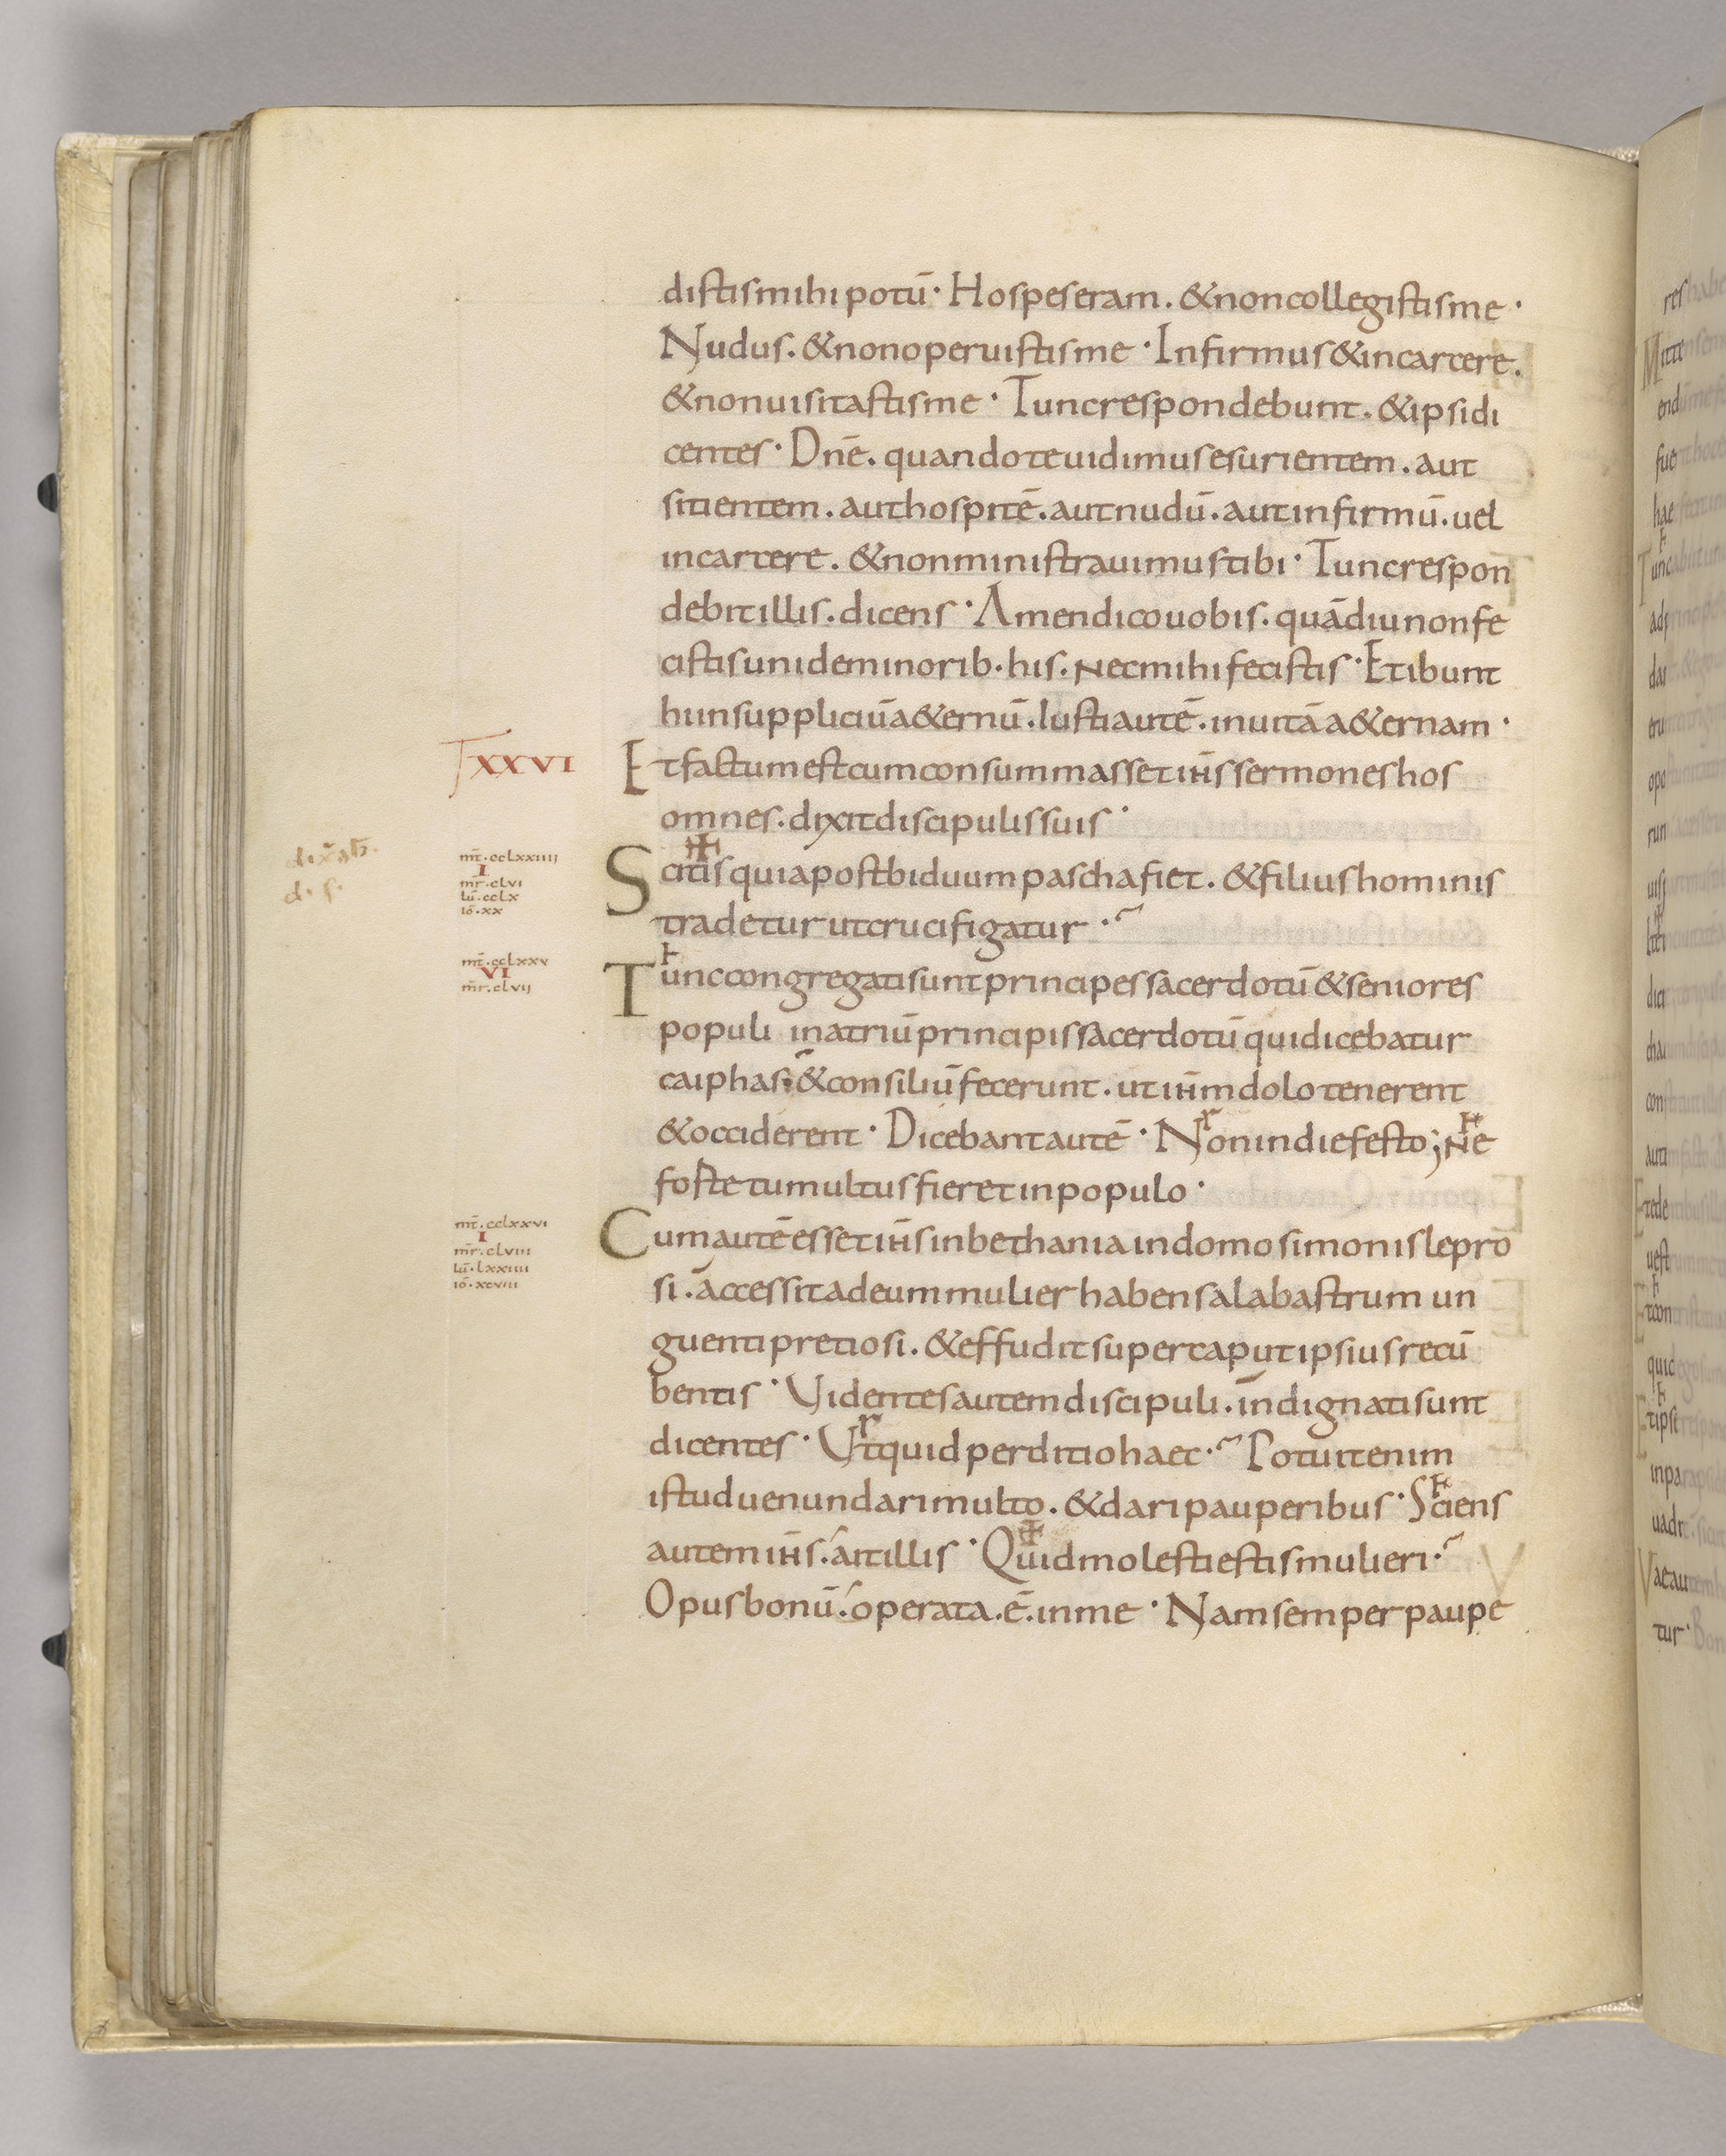 distis mihi potū· Hospes eram. & non collegistis me·
Nudus. & non operuistis me· Infirmus & in carcere.
& non uisitastis me· Tunc respondebunt. & ipsi di
centes· Dnē. quando te uidimus esurientem. aut
sitientem. aut hospitē. aut nudū. aut infirmū. uel
in carcere. & non ministrauimus tibi· Tunc respon
debit illis. dicens· Amen dico uobis. quādiu non fe
cistis uni de minorib. his. nec mihi fecistis· Et ibunt
hi in suppliciū a&ernū. Iusti autē. in uitā a&ernam·
XXVI
Et factum est cum consummasset ih̄s sermones hos
omnes. dixit discipulis suis·
mt̄. cclxxiiii
I
mr̄. clvi
lū. cclx
iō. xx
Scitis quia post biduum pascha fiet. & filius hominis
tradetur ut crucifigatur·
mt̄. cclxxv
VI
mr̄. clvii
Tunc congregati sunt principes sacerdotū & seniores
populi in atriū principis sacerdotū qui dicebatur
caiphas; & consiliū fecerunt. ut ih̄m dolo tenerent
& occiderent· Dicebant autē· Non in die festo; Ne
forte tumultus fieret in populo·
mt̄. cclxxvi
I
mr̄. clviii
lū. lxxiiii
iō. xcviii
Cum autē esset ih̄s in bethania in domo simonis lepro
si. accessit ad eum mulier habens alabastrum un
guenti pretiosi. & effudit super caput ipsius recū
bentis· Uidentes autem discipuli. indignati sunt
dicentes· Ut quid perditio haec· Potuit enim
istud uenundari multo. & dari pauperibus· Sciens
autem ih̄s. ait illis· Quid molesti estis mulieri·
Opus bonū. operata. ē. in me· Nam semper paupe